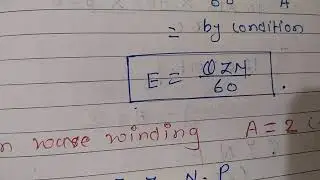 60 A
= by condition
E = ØZN / 60 .
wave winding A = 2
Z N. P